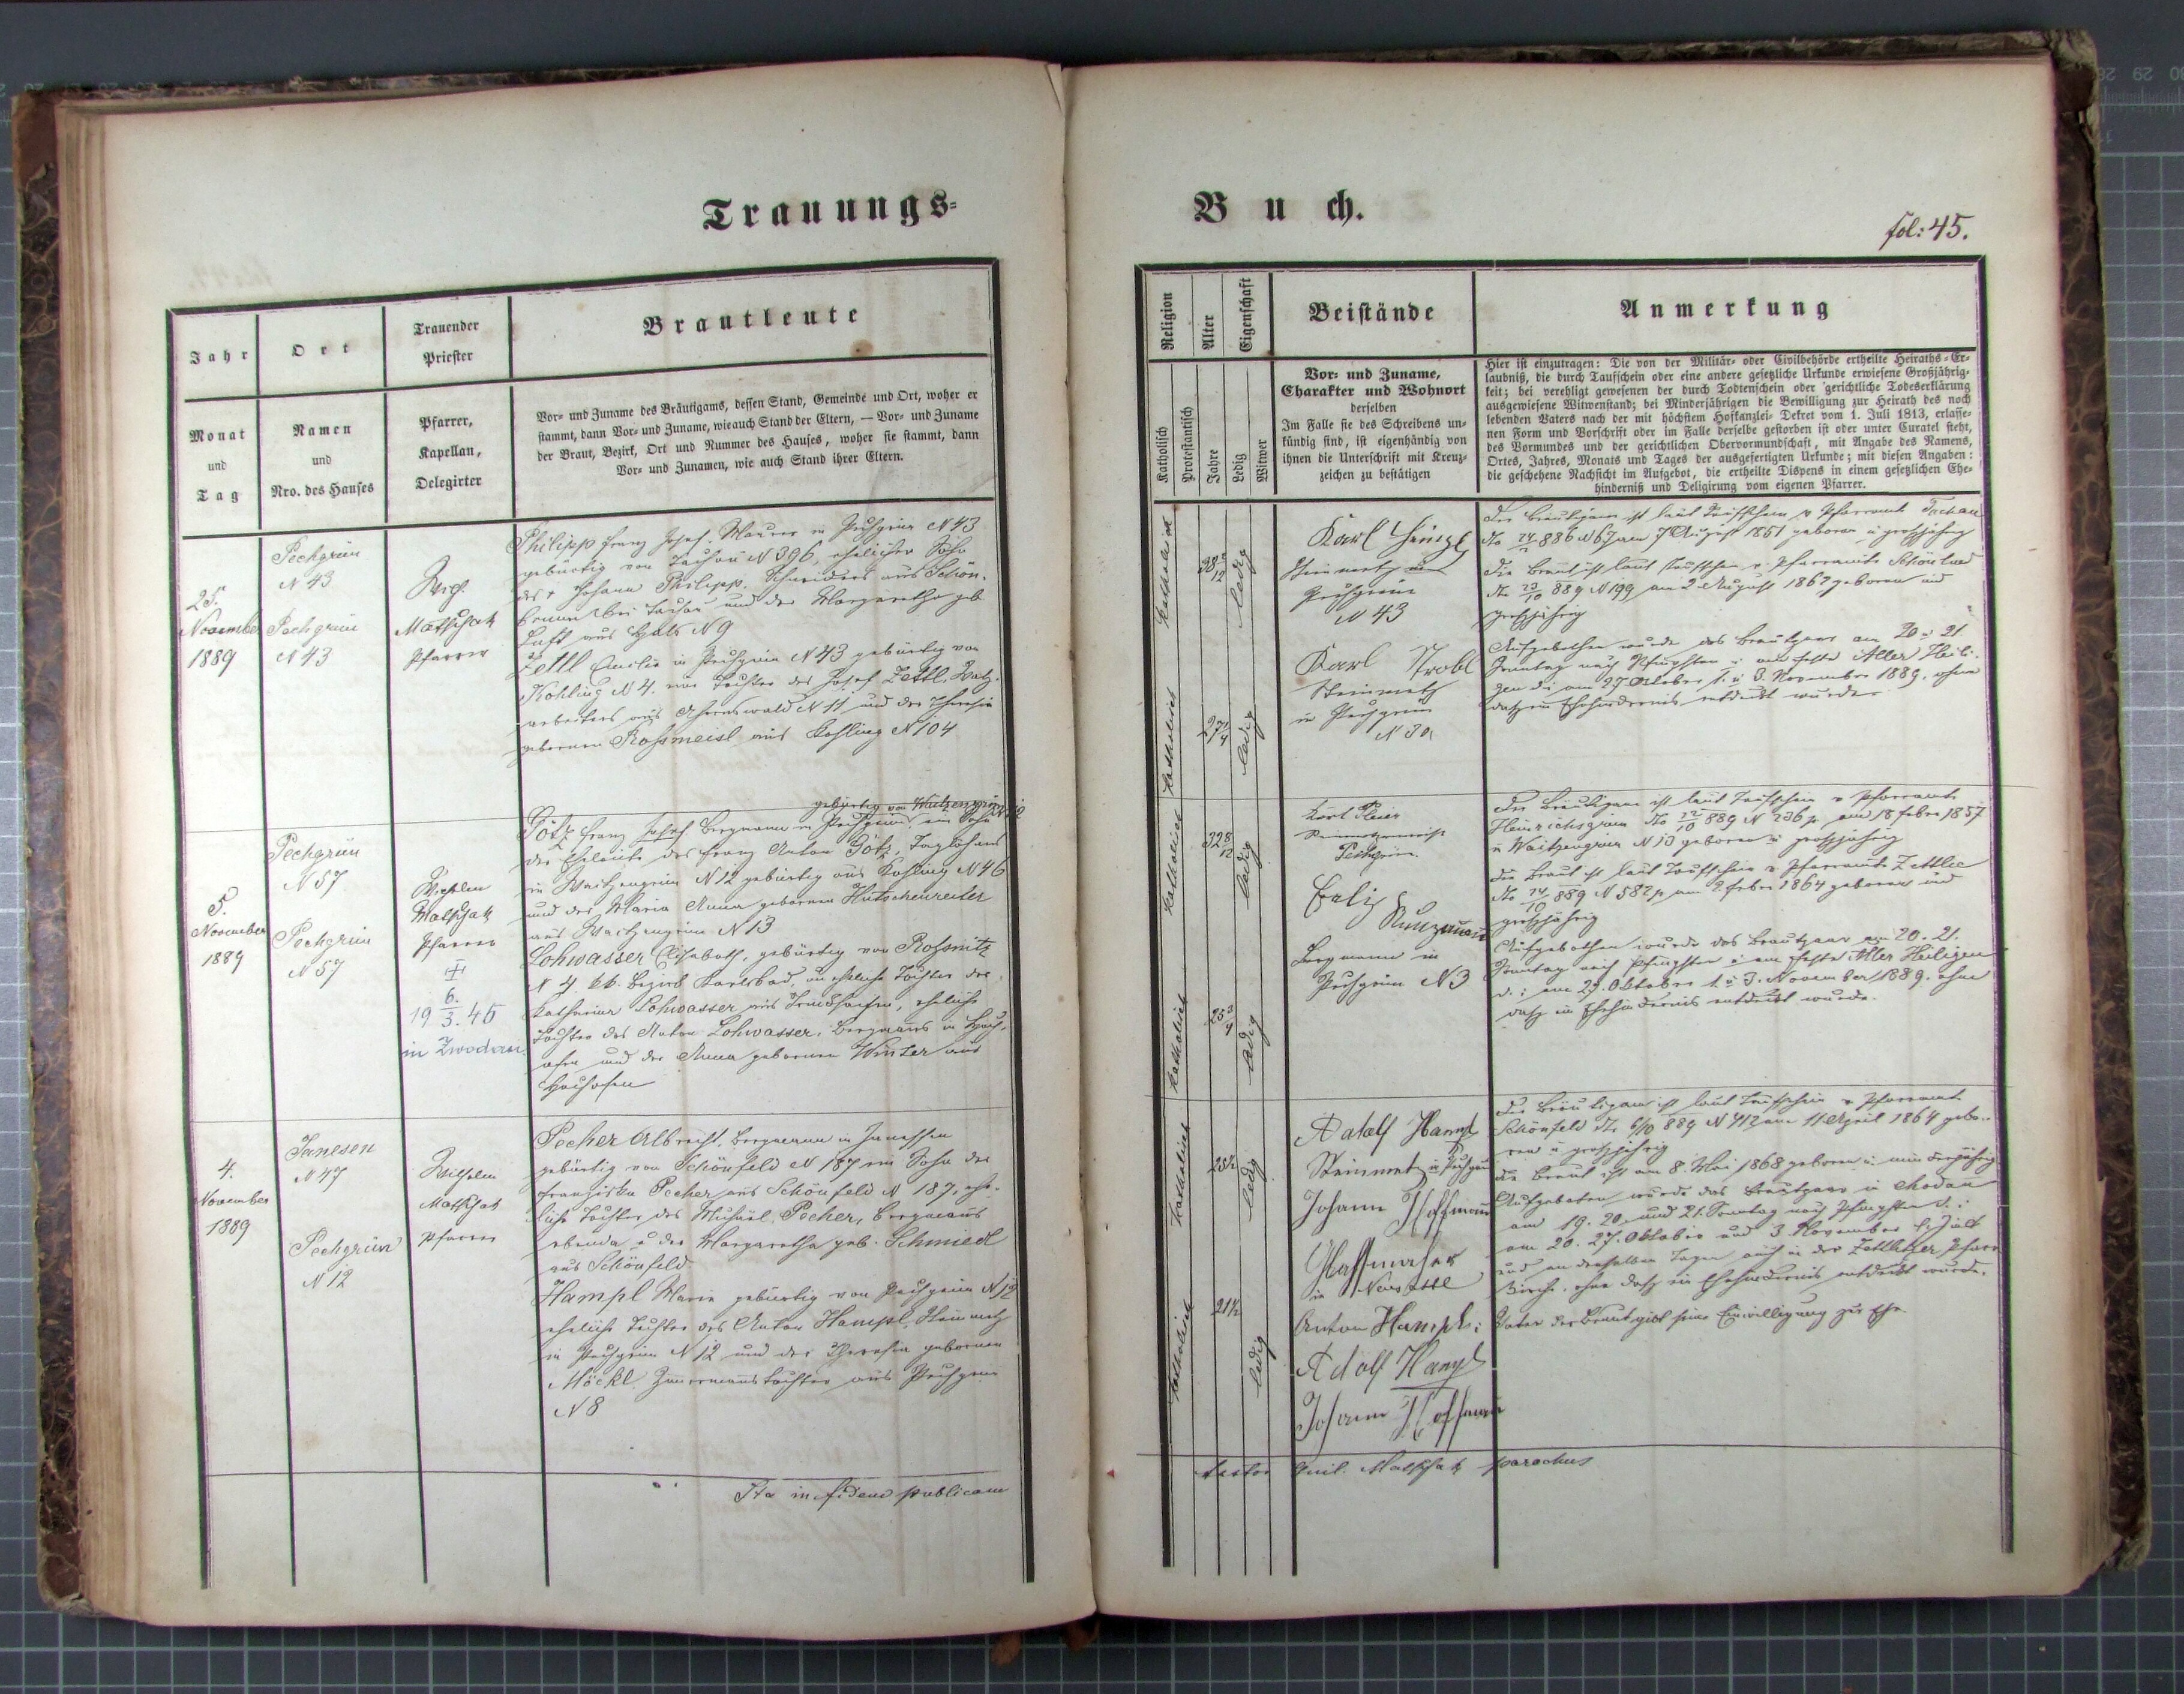 Trauungs=
Buch.
fol: 45.
Jahr
Monat
und
Tag
Ort
Namen
und
Nro. des Hauses
Trauender
Priester
Pfarrer,
Kapellan,
Delegirter
Brautleute
Vor= und Zuname des Bräutigams, dessen Stand, Gemeinde und Ort, woher er
stammt, dann Vor= und Zuname, wie auch Stand der Eltern, — Vor= und Zuname
der Braut, Bezirk, Ort und Nummer des Hauses, woher sie stammt, dann
Vor= und Zunamen, wie auch Stand ihrer Eltern.
Religion
Katholisch
Protestantisch
Alter
Jahre
Eigenschaft
Ledig
Witwer
Beistände
Vor= und Zuname,
Charakter und Wohnort
derselben
Im Falle sie des Schreibens un=
kündig sind, ist eigenhändig von
ihnen die Unterschrift mit Kreuz=
zeichen zu bestätigen
Anmerkung
Hier ist einzutragen: Die von der Militär= oder Civilbehörde ertheilte Heiraths=Er=
laubniß, die durch Taufschein oder eine andere gesetzliche Urkunde erwiesene Großjährig=
keit; bei verehligt gewesenen der durch Todtenschein oder gerichtliche Todeserklärung
ausgewiesene Witwenstand; bei Minderjährigen die Bewilligung zur Heirath des noch
lebenden Vaters nach der mit höchstem Hofkanzlei= Dekret vom 1. Juli 1813, erlasse=
nen Form und Vorschrift oder im Falle derselbe gestorben ist oder unter Curatel steht,
des Vormundes und der gerichtlichen Obervormundschaft, mit Angabe des Namens,
Ortes, Jahres, Monats und Tages der ausgefertigten Urkunde; mit diesen Angaben:
die geschehene Nachsicht im Aufgebot, die ertheilte Dispens in einem gesetzlichen Ehe=
hinderniß und Deligirung vom eigenen Pfarrer.
25.
November
1889
Pechgrün
N 43
Pechgrün
N 43
Matschak
Pfarrer
Philipp Franz Josef, Maurer in Pechgrün N 43
gebürtig von Tachau N 396, ehelicher Sohn
des + Johann Philipp, Schneiders aus Schön-
brunn bei Tachau und der Margaretha geb
Luft aus Hals N 9
Zettl Emilie in Pechgrün N 43 gebürtig von
Kohling N 4. eine Tochter des Josef Zettl,
arbeiters aus N 11 und der Theresia
gebornen Rossmeisl aus Kohling N 104
katholisch
ledig
katholisch
27 1/4
ledig
Karl
Steinmetz in
Pechgrün
N 43
Karl Strobl
Steinmetz
in Pechgrün
N 30
Der Bräutigam ist laut Taufschein v Pfarramt Tachau
am 7 August 1851 geboren u großjährig
Die Braut ist laut Taufschein v. Pfarramte
889 N 199 am 2 August 1862 geboren und
großjährig
Aufgebothen wurde das Brautpaar am 20 u 21
Sonntag nach Pfingsten u am Feste Aller Heili-
gen d i am 27 Oktober 1. u 3. November 1889. ohne
daß ein Ehehinderniß entdeckt wurde
5.
November
1889
Pechgrün
N 57
Pechgrün
N 57
Wilhelm
Matschak
Pfarrer
6.
19 3. 45
in Zwodau.
gebürtig von Waitzengrün N 12
Götz Franz Josef Bergmann in Pechgrün, ein Sohn
der Eheleute des Franz Anton Götz, Taglöhners
in Waitzengrün N 12 gebürtig aus Kohling N 46
und der Maria Anna gebornen Hutschenreiter
aus Waitzengrün N 13
Lohwasser Elisabeth, gebürtig von Rossnitz
N 4. kk. Bezirk Karlsbad, uneheliche Tochter der
Katharina Lohwasser aus, eheliche
Tochter des Anton Lohwasser, Bergmanns in
und der Anna gebornen Winter aus
katholisch
32 8/12
ledig
katholisch
25 3/4
ledig
Pechgrün.
Bergmann in
Pechgrün N 3
Der Bräutigam ist laut Taufschein v Pfarramte
Heinrichsgrün 889 N 236 p am 18 Feber 1857
in Waitzengrün N 13 geboren u großjährig
die Braut ist laut Taufschein v Pfarramte Zettlic
889 N 582 p am 2 Feber 1864 geboren und
großjährig
Aufgebothen wurde das Brautpaar am 20. 21.
Sonntag nach Pfingsten u am Feste Aller Heiligen
d. i am 27. Oktober 1. u 3. November 1889. ohne
daß ein Ehehinderniß entdeckt wurde.
4.
November
1889
Janesen
N 47
Pechgrün
N 12
Wilhelm
Matschak
Pfarrer
Pecher Albrecht, Bergmann in Janessen
gebürtig von Schönfeld N 187 ein Sohn der
Franziska Pecher aus Schönfeld N 187, ehe-
liche Tochter des Michael Pecher, Bergmanns
ebenda u der Margaretha geb. Schmiedl
aus Schönfeld.
Hampl Marie gebürtig von Pechgrün N 12
eheliche Tochter des Anton Hampl, Steinmetz
in Pechgrün N 12 und der Theresia gebornen
Möckl Zimmermannstochter aus Pechgrün
N 8
katholisch
25 1/2
ledig
katholisch
21 1/2
ledig
Adolf Hampl
Steinmetz in Pechgrün
Johann Hoffmann
in Neusattl
Anton Hampl:
Adolf Hampl
Johann Hoffmann
Der Bräutigam ist laut Taufschein v Pfarramte
Schönfeld dto 6/10 889 N 412 am 11 April 1864 gebo-
ren u großjährig
die Braut ist am 8. Mai 1868 geboren u. minderjährig
Aufgeboten wurde das Brautpaar in Chodau
am 19. 20. und 21. Sonntag nach Pfingsten d. i
am 20. 27. Oktober und 3. November
und an denselben Tagen auch in der Zettlitzer Pfarr
kirche. ohne daß ein Ehehinderniß entdeckt wurde.
Vater der Braut gibt seine Einwilligung zur Ehe.
Ita in fidem publicam
testor Guil. Matschak parochus